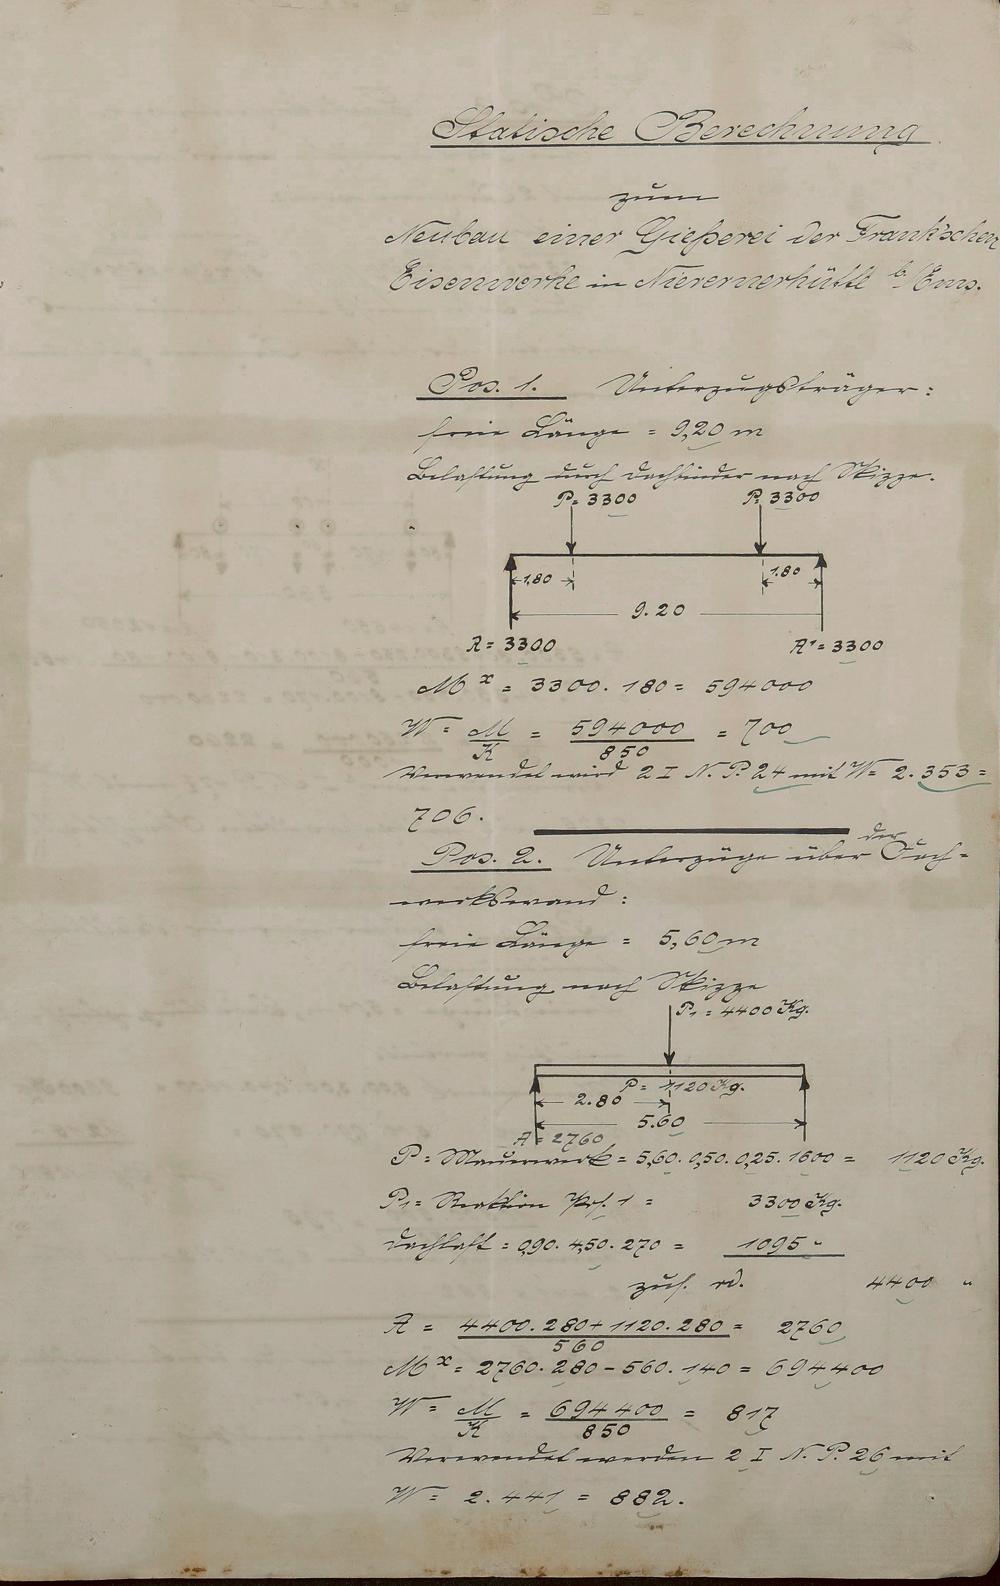 Statische Berechnung
zum
Neubau einer Gießerei der Frank'schen
Eisenwerke in Nievernerhütte b/Ems.
Pos. 1. Unterzugsträger:
freie Länge = 9,20 m
Belastung durch Dachbinder nach Skizze.
P= 3300 P. 3300
1.80 1.80
9.20
A = 3300 A¹ = 3300
Mx = 3300. 180 = 594000
W = M/K = 594000/850 = 700
Verwendet wird 2 I N. P. 24 mit W = 2. 353 =
706.
Pos. 2. Unterzüge über der Fach-
werkswand:
freie Länge = 5,60 m
Belastung nach Skizze
P₁ = 4400 Kg.
P = 1120 Kg.
2.80
5.60
A = 2760
P = Mauerwerk = 5,60. 0,50. 0,25. 1600 = 1120 Kg.
P₁ = Reaktion Pos. 1 = 3300 Kg.
Dachlast = 0,90. 4,50. 270 = 1095 "
zus. rd. 4400 "
A = 4400. 280 + 1120. 280/560 = 2760
Mx = 2760. 280 - 560. 140 = 694400
W = M/K = 694400/850 = 817
Verwendet werden 2 I N. P. 26 mit
W = 2. 441 = 882.